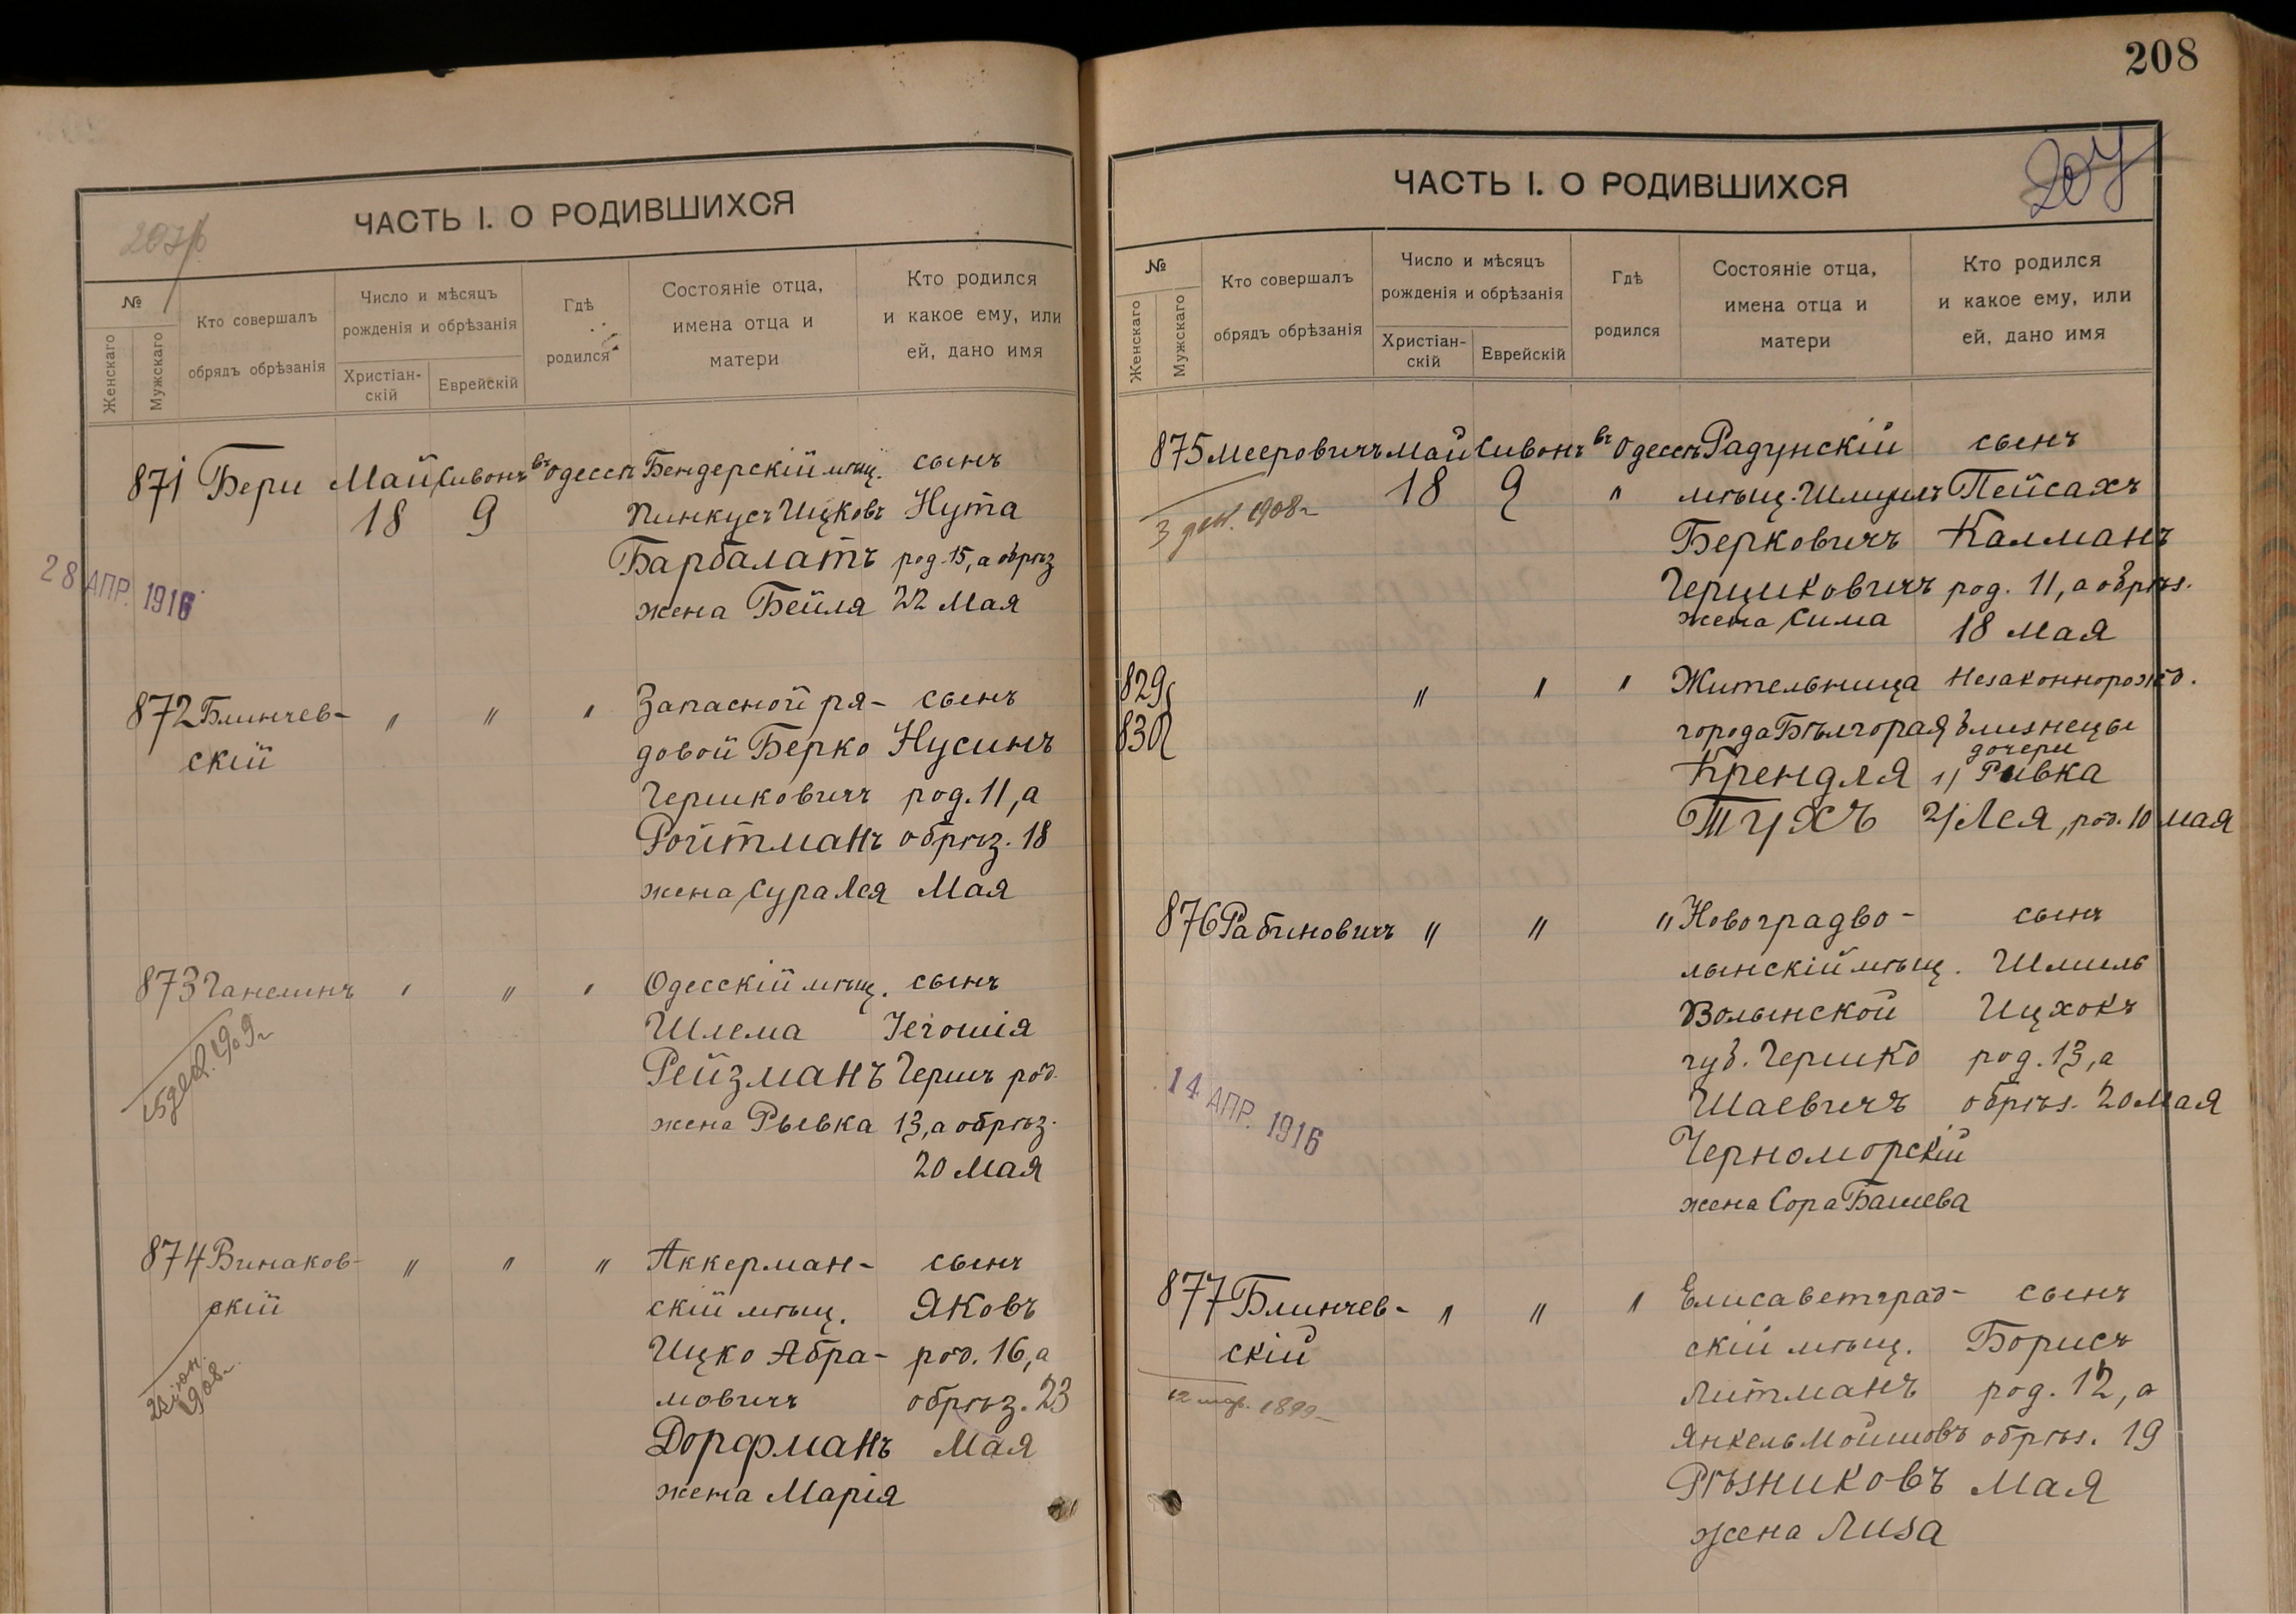 207 об
ЧАСТЬ I. О РОДИВШИХСЯ
№
Женскаго
Мужскаго
Кто совершалъ
обрядъ обрѣзанія
Число и мѣсяцъ
рожденія и обрѣзанія
Христіан-
скій
Еврейскій
Гдѣ
родился
Состояніе отца,
имена отца и
матери
Кто родился
и какое ему, или
ей, дано имя
871 Бери Май Сивонъ въ Одессѣ Бендерскій мѣщ. сынъ
18 9 Пинкусъ Ицковъ Нута
Барбалатъ род. 15, а обрѣз
28 АПР. 1916
жена Бейля 22 Мая
872 Блинчев- " " " Запасной ря- сынъ
скій довой Берко Нусинъ
Гершковичъ род. 11, а
Ройтманъ обрѣз. 18
жена Сура Лея Мая
873 Ганелинъ " " " Одесскій мѣщ. сынъ
Шлема Іегошія
15 дек. 1909 г
Рейзманъ Гершъ род.
жена Рывка 13, а обрѣз.
20 Мая
874 Винаков- " " " Аккерман- сынъ
скій скій мѣщ. Яковъ
Ицко Абра- род. 16, а
1908 г.
мовичъ обрѣз. 23
Дорфманъ Мая
жена Марія
208
207
ЧАСТЬ I. О РОДИВШИХСЯ
№
Женскаго
Мужскаго
Кто совершалъ
обрядъ обрѣзанія
Число и мѣсяцъ
рожденія и обрѣзанія
Христіан-
скій
Еврейскій
Гдѣ
родился
Состояніе отца,
имена отца и
матери
Кто родился
и какое ему, или
ей, дано имя
875 Мееровичъ Май Сивонъ въ Одессѣ Радунскій сынъ
18 9 " мѣщ. Шмуилъ Пейсахъ
3 дек. 1908 г
Берковичъ Калманъ
Герциковичъ род. 11, а обрѣз.
жена Сима 18 Мая
829 " " " Жительница Незаконнорожд.
830 города Бѣлгорая близнецы
дочери
Крендля 1) Ривка
Тухъ 2) Лея, род. 10 мая
876 Рабиновичъ " " " Новоградво- сынъ
лынскій мѣщ. Шмиль
Волынской Ицхокъ
губ. Гершко род. 13, а
14 АПР. 1916
Шаевичъ обрѣз. 20 мая
Черноморскій
жена Сора Башева
877 Блинчев- " " " Елисаветград- сынъ
скій скій мѣщ. Борисъ
12 мар. 1899
Литманъ род. 12, а
Янкель Мошковъ обрѣз. 19
Рѣзниковъ Мая
жена Лиза